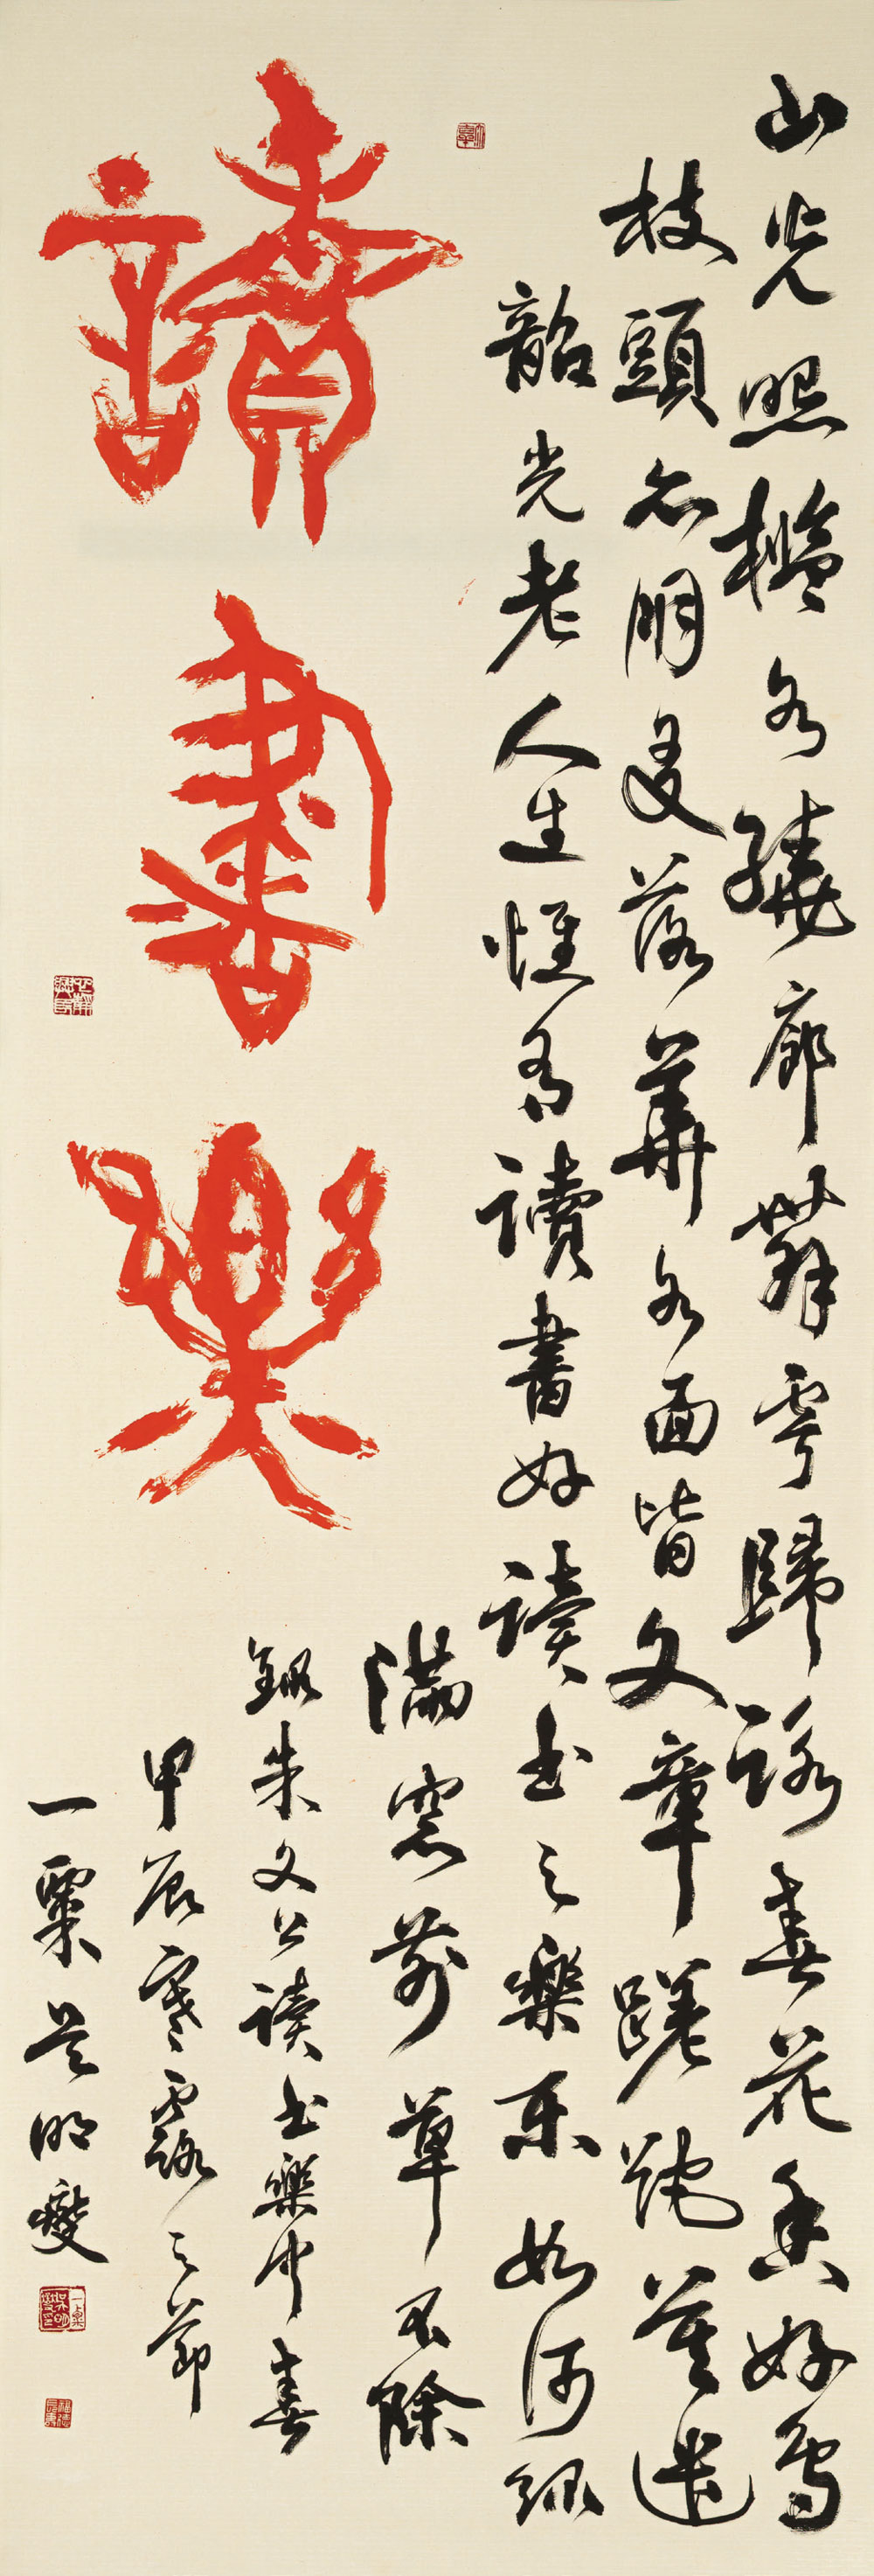 山光照檻水繞廊舞雩歸詠春花香好鳥
枝頭亦朋友落華水面皆文章蹉跎莫遣
韶光老人生惟有讀書好讀書之樂樂如何綠
滿窗前草不除
讀書樂
錄朱文公讀書樂中春
甲辰寒露之節
一粟吳明